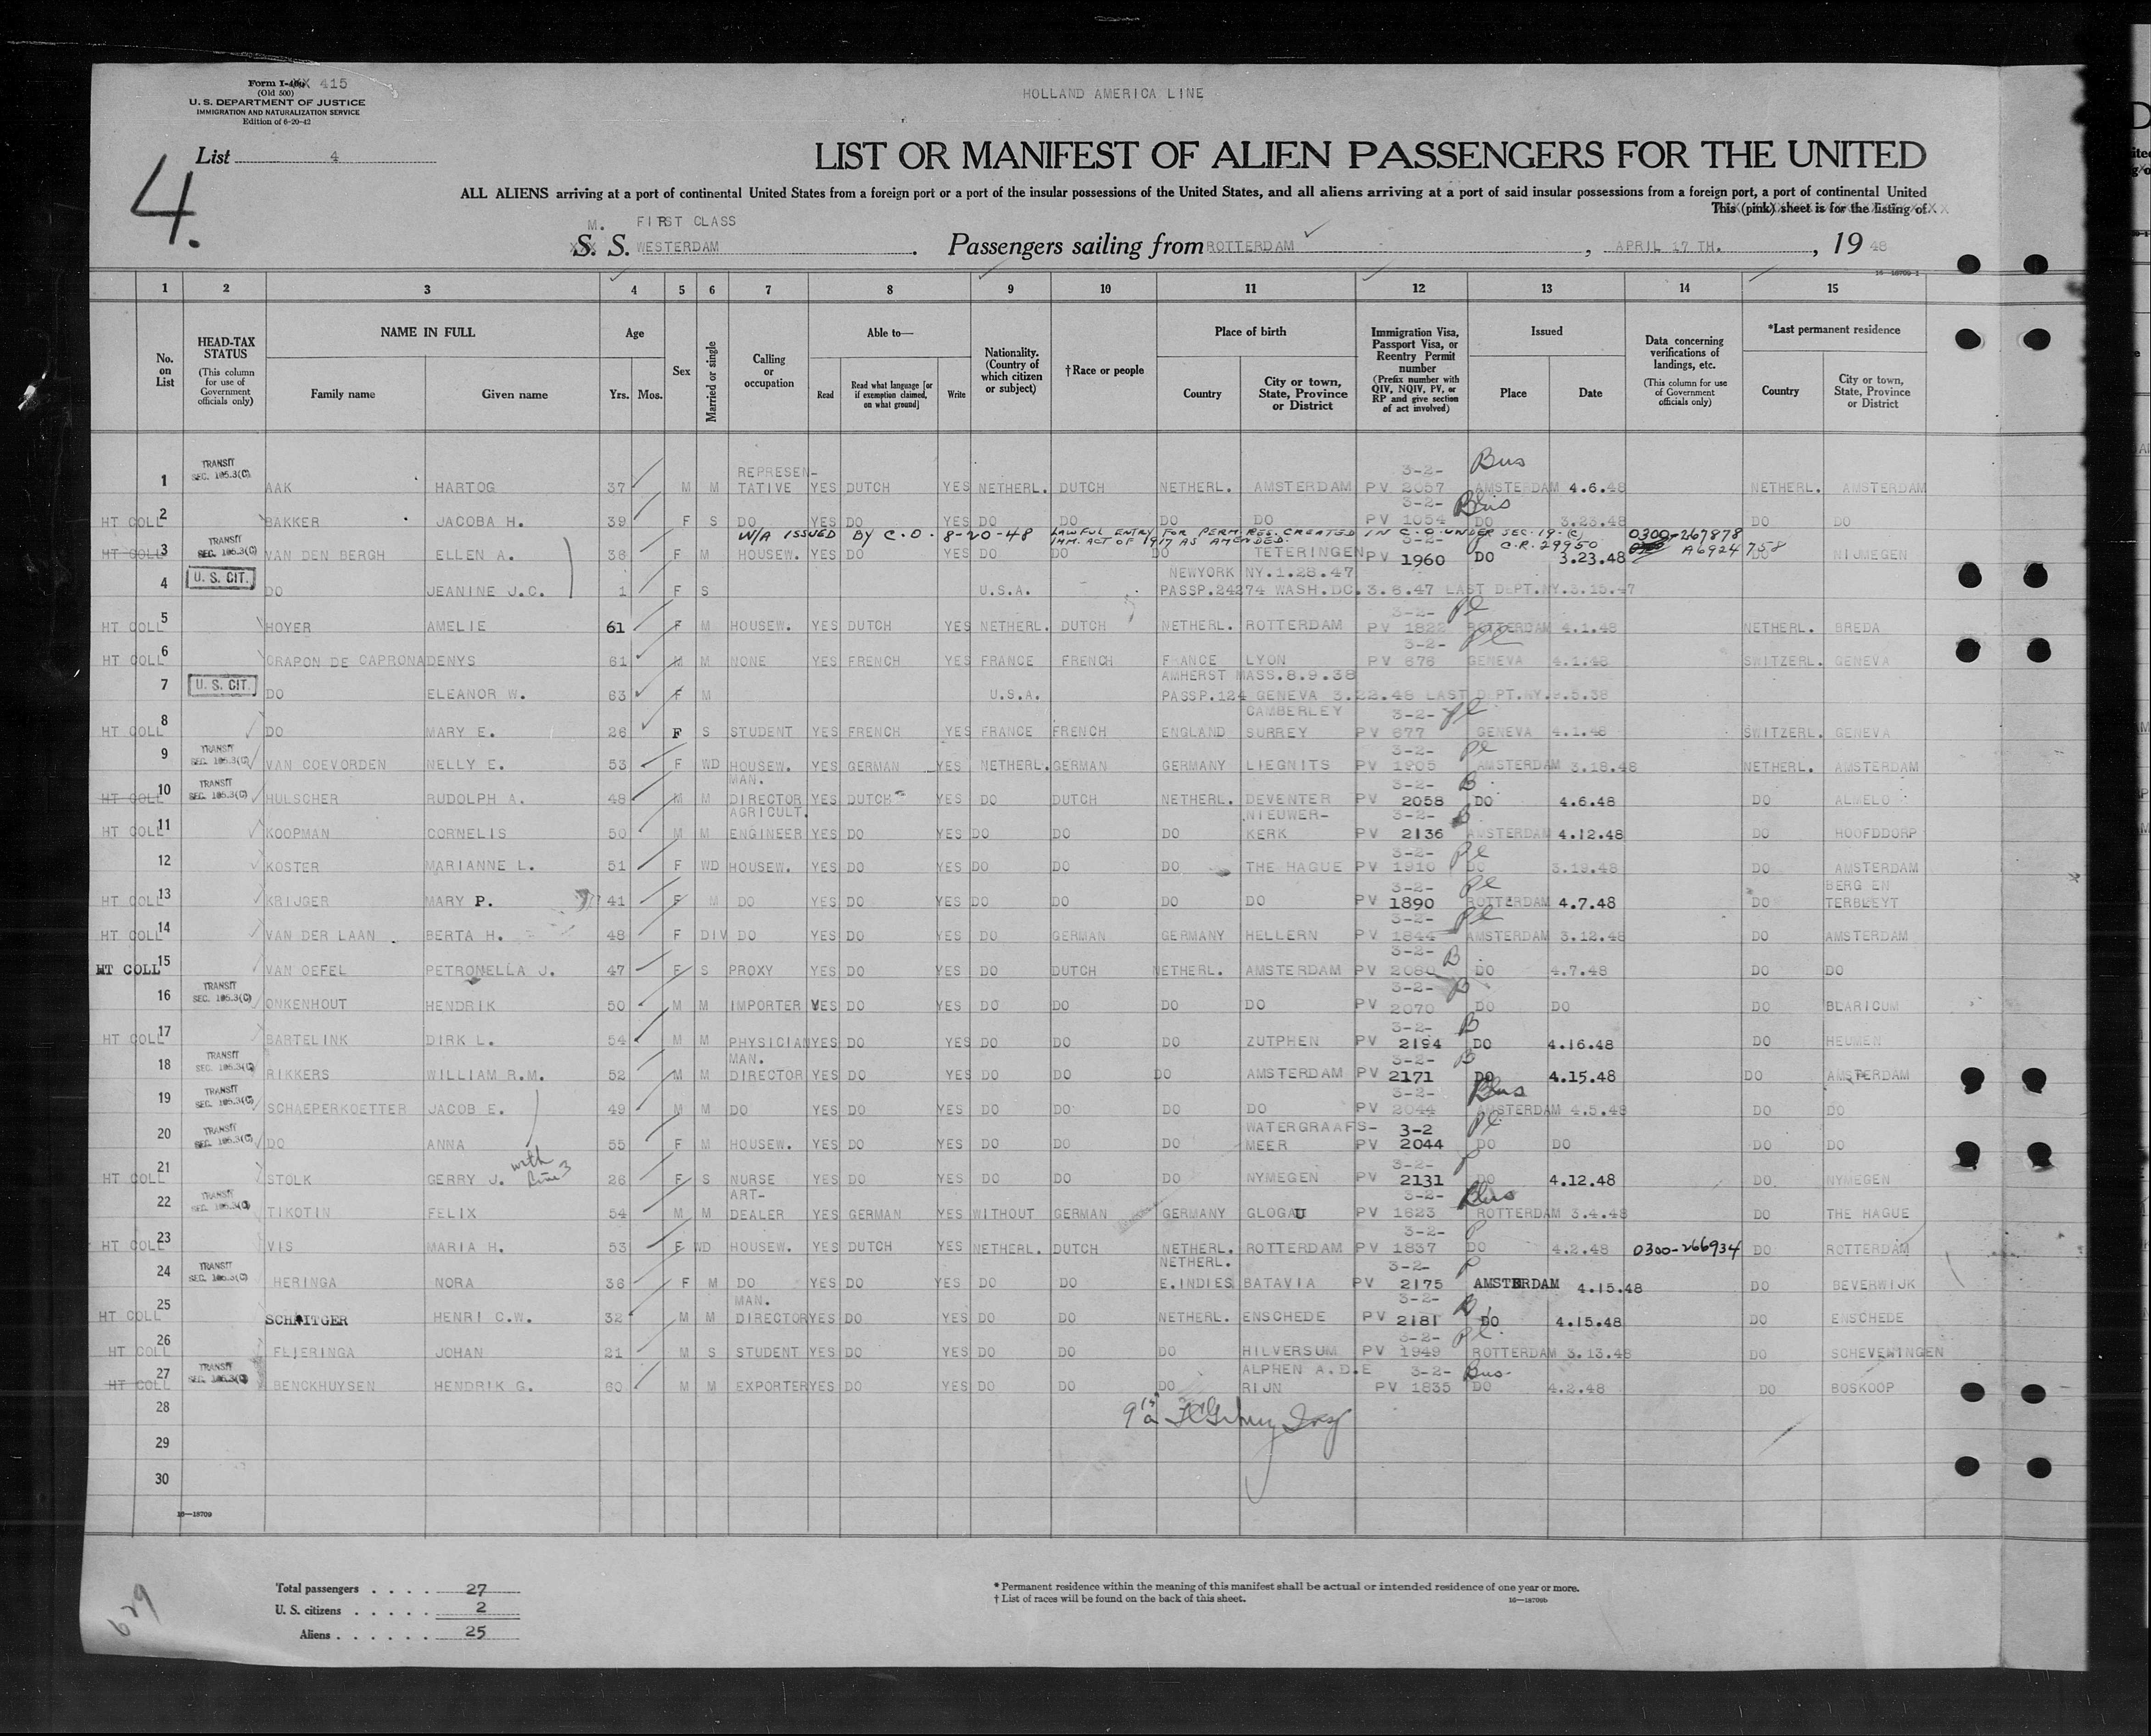 Form I-415
(Old 500)
U. S. DEPARTMENT OF JUSTICE
IMMIGRATION AND NATURALIZATION SERVICE
Edition of 6-20-42
HOLLAND AMERICA LINE
List 4
4.
LIST OR MANIFEST OF ALIEN PASSENGERS FOR THE UNITED
ALL ALIENS arriving at a port of continental United States from a foreign port or a port of the insular possessions of the United States, and all aliens arriving at a port of said insular possessions from a foreign port, a port of continental United
This (pink) sheet is for the listing of
M. FIRST CLASS
S. S. WESTERDAM. Passengers sailing from ROTTERDAM, APRIL 17 TH., 19 48
16—18709-1
1 2 3 4 5 6 7 8 9 10 11 12 13 14 15
No. on List
HEAD-TAX STATUS (This column for use of Government officials only)
NAME IN FULL
Family name Given name
Age
Yrs. Mos.
Sex
Married or single
Calling or occupation
Able to—
Read Read what language [or if exemption claimed, on what ground] Write
Nationality. (Country of which citizen or subject)
†Race or people
Place of birth
Country City or town, State, Province or District
Immigration Visa, Passport Visa, or Reentry Permit number (Prefix number with QIV, NQIV, PV, or RP and give section of act involved)
Issued
Place Date
Data concerning verifications of landings, etc. (This column for use of Government officials only)
*Last permanent residence
Country City or town, State, Province or District
1 TRANSIT SEC. 105.3(C) AAK HARTOG 37 M M REPRESENTATIVE YES DUTCH YES NETHERL. DUTCH NETHERL. AMSTERDAM 3-2- PV 2057 Bus AMSTERDAM 4.6.48 NETHERL. AMSTERDAM
HT COLL 2 BAKKER JACOBA H. 39 F S DO YES DO YES DO DO DO DO 3-2- PV 1054 Bus DO 3.23.48 DO DO
W/A ISSUED BY C.O. 8-20-48 LAWFUL ENTRY FOR PERM. RES. CREATED IN C.O. UNDER SEC. 19.(c) IMM. ACT OF 1917 AS AMENDED. C.R. 29950 0300-267878 A6924758
HT COLL 3 TRANSIT SEC. 105.3(C) VAN DEN BERGH ELLEN A. 36 F M HOUSEW. YES DO YES DO DO DO TETERINGEN 3-2- PV 1960 DO 3.23.48 DO NIJMEGEN
4 U. S. CIT. DO JEANINE J.C. 1 F S U.S.A. NEWYORK NY.1.28.47 PASSP.24274 WASH.DC.3.6.47 LAST DEPT.NY.3.15.47
HT COLL 5 HOYER AMELIE 61 F M HOUSEW. YES DUTCH YES NETHERL. DUTCH NETHERL. ROTTERDAM 3-2- PV 1822 Pl ROTTERDAM 4.1.48 NETHERL. BREDA
HT COLL 6 CRAPON DE CAPRONA DENYS 61 M M NONE YES FRENCH YES FRANCE FRENCH FRANCE LYON 3-2- PV 676 Pl GENEVA 4.1.48 SWITZERL. GENEVA
7 U. S. CIT. DO ELEANOR W. 63 F M U.S.A. AMHERST MASS.8.9.38 PASSP.124 GENEVA 3.22.48 LAST DEPT.NY.9.5.38
HT COLL 8 DO MARY E. 26 F S STUDENT YES FRENCH YES FRANCE FRENCH ENGLAND CAMBERLEY SURREY 3-2- PV 677 Pl GENEVA 4.1.48 SWITZERL. GENEVA
9 TRANSIT SEC. 105.3(C) VAN COEVORDEN NELLY E. 53 F WD HOUSEW. YES GERMAN YES NETHERL. GERMAN GERMANY LIEGNITS 3-2- PV 1905 Pl AMSTERDAM 3.18.48 NETHERL. AMSTERDAM
HT COLL 10 TRANSIT SEC. 105.3(C) HULSCHER RUDOLPH A. 48 M M MAN. DIRECTOR YES DUTCH YES DO DUTCH NETHERL. DEVENTER 3-2- PV 2058 B DO 4.6.48 DO ALMELO
HT COLL 11 KOOPMAN CORNELIS 50 M M AGRICULT. ENGINEER YES DO YES DO DO DO NIEUWER-KERK 3-2- PV 2136 B AMSTERDAM 4.12.48 DO HOOFDDORP
12 KOSTER MARIANNE L. 51 F WD HOUSEW. YES DO YES DO DO DO THE HAGUE 3-2- PV 1910 Pl DO 3.19.48 DO AMSTERDAM
HT COLL 13 KRIJGER MARY P. 41 F M DO YES DO YES DO DO DO DO 3-2- PV 1890 Pl ROTTERDAM 4.7.48 DO BERG EN TERBLEYT
HT COLL 14 VAN DER LAAN BERTA H. 48 F DIV DO YES DO YES DO GERMAN GERMANY HELLERN 3-2- PV 1844 Pl AMSTERDAM 3.12.48 DO AMSTERDAM
HT COLL 15 VAN OEFEL PETRONELLA J. 47 F S PROXY YES DO YES DO DUTCH NETHERL. AMSTERDAM 3-2- PV 2080 B DO 4.7.48 DO DO
16 TRANSIT SEC. 105.3(C) ONKENHOUT HENDRIK 50 M M IMPORTER YES DO YES DO DO DO DO 3-2- PV 2070 B DO DO DO BLARICUM
HT COLL 17 BARTELINK DIRK L. 54 M M PHYSICIAN YES DO YES DO DO DO ZUTPHEN 3-2- PV 2194 B DO 4.16.48 DO HEUMEN
18 TRANSIT SEC. 105.3(C) RIKKERS WILLIAM R.M. 52 M M MAN. DIRECTOR YES DO YES DO DO DO AMSTERDAM 3-2- PV 2171 B DO 4.15.48 DO AMSTERDAM
19 TRANSIT SEC. 105.3(C) SCHAEPERKOETTER JACOB E. 49 M M DO YES DO YES DO DO DO DO 3-2- PV 2044 Bus AMSTERDAM 4.5.48 DO DO
20 TRANSIT SEC. 105.3(C) DO ANNA 55 F M HOUSEW. YES DO YES DO DO DO WATERGRAAFS-MEER 3-2 PV 2044 Pl. DO DO DO DO
HT COLL 21 STOLK GERRY J. with line 3 26 F S NURSE YES DO YES DO DO DO NYMEGEN 3-2- PV 2131 DO 4.12.48 DO NYMEGEN
22 TRANSIT SEC. 105.3(C) TIKOTIN FELIX 54 M M ART-DEALER YES GERMAN YES WITHOUT GERMAN GERMANY GLOGAU 3-2- PV 1623 Bus ROTTERDAM 3.4.48 DO THE HAGUE
HT COLL 23 VIS MARIA H. 53 F WD HOUSEW. YES DUTCH YES NETHERL. DUTCH NETHERL. ROTTERDAM 3-2- PV 1837 P DO 4.2.48 0300-266934 DO ROTTERDAM
24 TRANSIT SEC. 105.3(C) HERINGA NORA 36 F M DO YES DO YES DO DO NETHERL. E.INDIES BATAVIA 3-2- PV 2175 P AMSTERDAM 4.15.48 DO BEVERWIJK
HT COLL 25 SCHAITGER HENRI C.W. 32 M M MAN. DIRECTOR YES DO YES DO DO NETHERL. ENSCHEDE 3-2- PV 2181 B DO 4.15.48 DO ENSCHEDE
HT COLL 26 FLIERINGA JOHAN 21 M S STUDENT YES DO YES DO DO DO HILVERSUM 3-2- PV 1949 Pl. ROTTERDAM 3.13.48 DO SCHEVENINGEN
HT COLL 27 TRANSIT SEC. 105.3(C) BENCKHUYSEN HENDRIK G. 60 M M EXPORTER YES DO YES DO DO DO ALPHEN A.D.E RIJN 3-2- PV 1835 Bus. DO 4.2.48 DO BOSKOOP
28
29
30
16—18709
Total passengers . . . . 27
U. S. citizens . . . . . 2
Aliens . . . . . . 25
* Permanent residence within the meaning of this manifest shall be actual or intended residence of one year or more.
† List of races will be found on the back of this sheet.
16—18709b
629